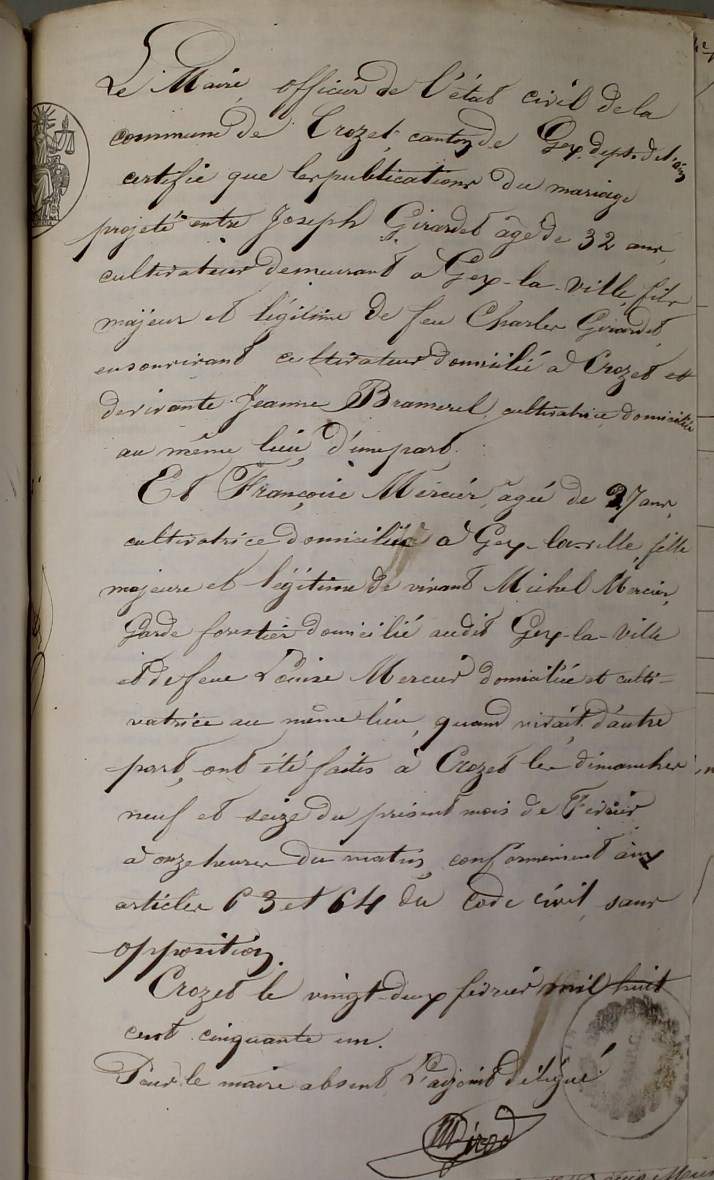 Le Maire officier de l'état civil de la
commune de Crozet canton de Gex dépt. de l'ain
certifie que les publications du mariage
projeté entre Joseph Girardet âgé de 32 ans,
cultivateur demeurant à Gex-la-ville, fils
majeur et légitime de feu Charles Girardet
en son vivant cultivateur domicilié à Crozet et
de vivante Jeanne Bramerel, cultivatrice domiciliée
au même lieu, d'une part.
Et Françoise Mercier, âgée de 27 ans,
cultivatrice domiciliée à Gex-la-ville, fille
majeure et légitime de vivant Michel Mercier,
Garde forestier domicilié audit Gex-la-Ville
et de feue Louise Mercier domiciliée et culti-
vatrice au même lieu, quand vivait, d'autre
part, ont été faites à Crozet les dimanches
neuf et seize du présent mois de Février
à onze heures du matin, conformément aux
articles 63 et 64 du code civil, sans
opposition.
Crozet le vingt-deux février mil huit
cent cinquante un.
Pour le maire absent L'adjoint délégué
Girod